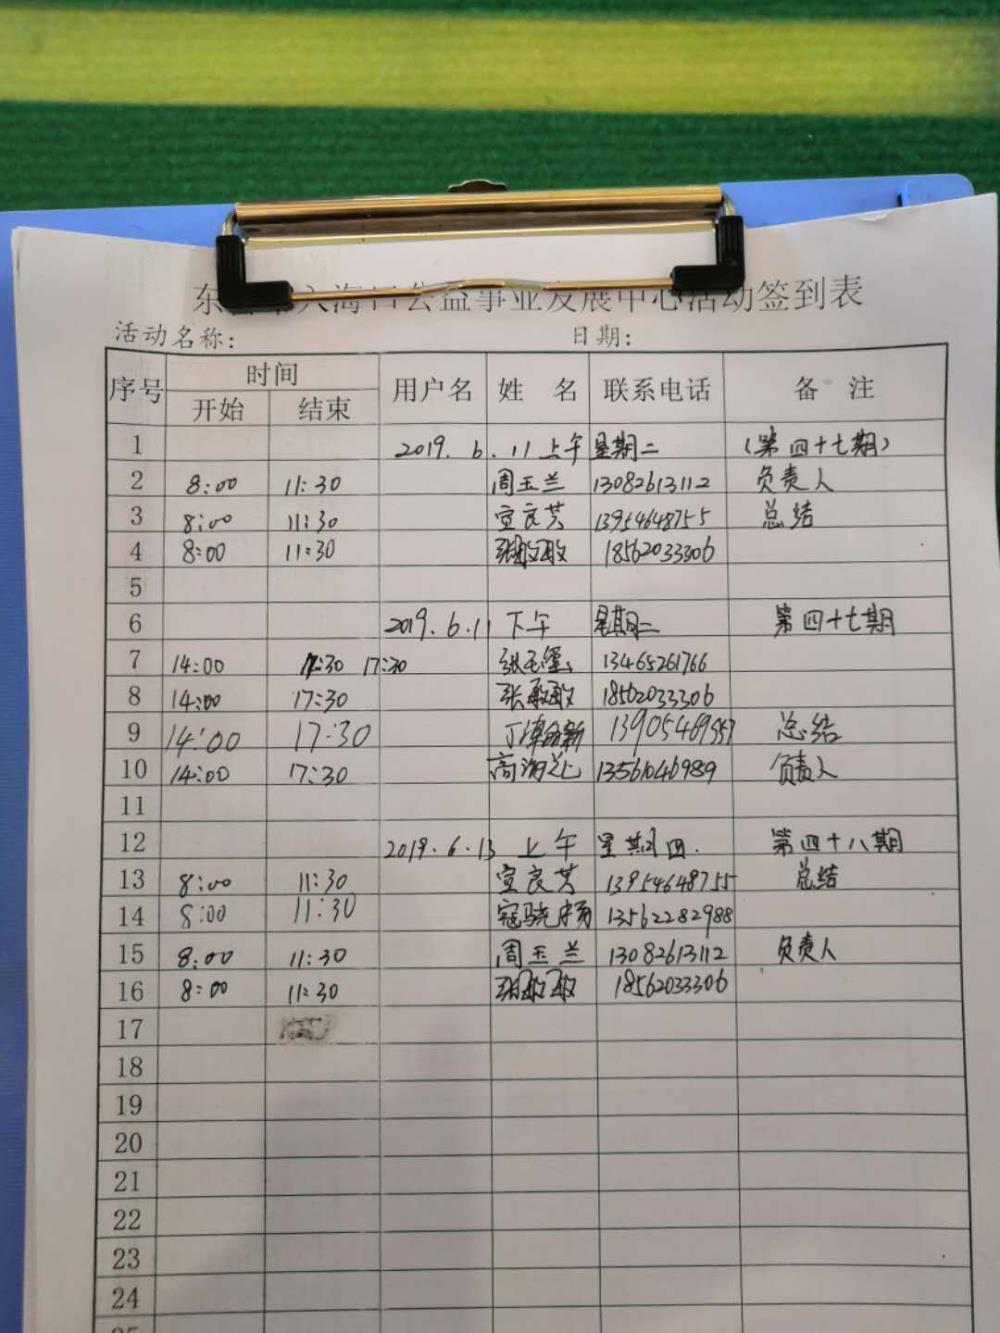 海口公益事业发展中心活动签到表
活动名称： 日期：
序号 时间 用户名 姓名 联系电话 备注
开始 结束
1 2019.6.11上午 星期二 (第四十七期)
2 8:00 11:30 周玉兰 13082613112 负责人
3 8:00 11:30 宣良芳 13954648755 总结
4 8:00 11:30 张敏敏 18562033306
5
6 2019.6.11 下午 星期二 第四十七期
7 14:00 17:30 17:30 13465261766
8 14:00 17:30 张敏敏 18562033306
9 14:00 17:30 13905469557 总结
10 14:00 17:30 13561046989 负责人
11
12 2019.6.13 上午 星期四. 第四十八期
13 8:00 11:30 宣良芳 13954648755 总结
14 8:00 11:30 13562282988
15 8:00 11:30 周玉兰 13082613112 负责人
16 8:00 11:30 张敏敏 18562033306
17
18
19
20
21
22
23
24